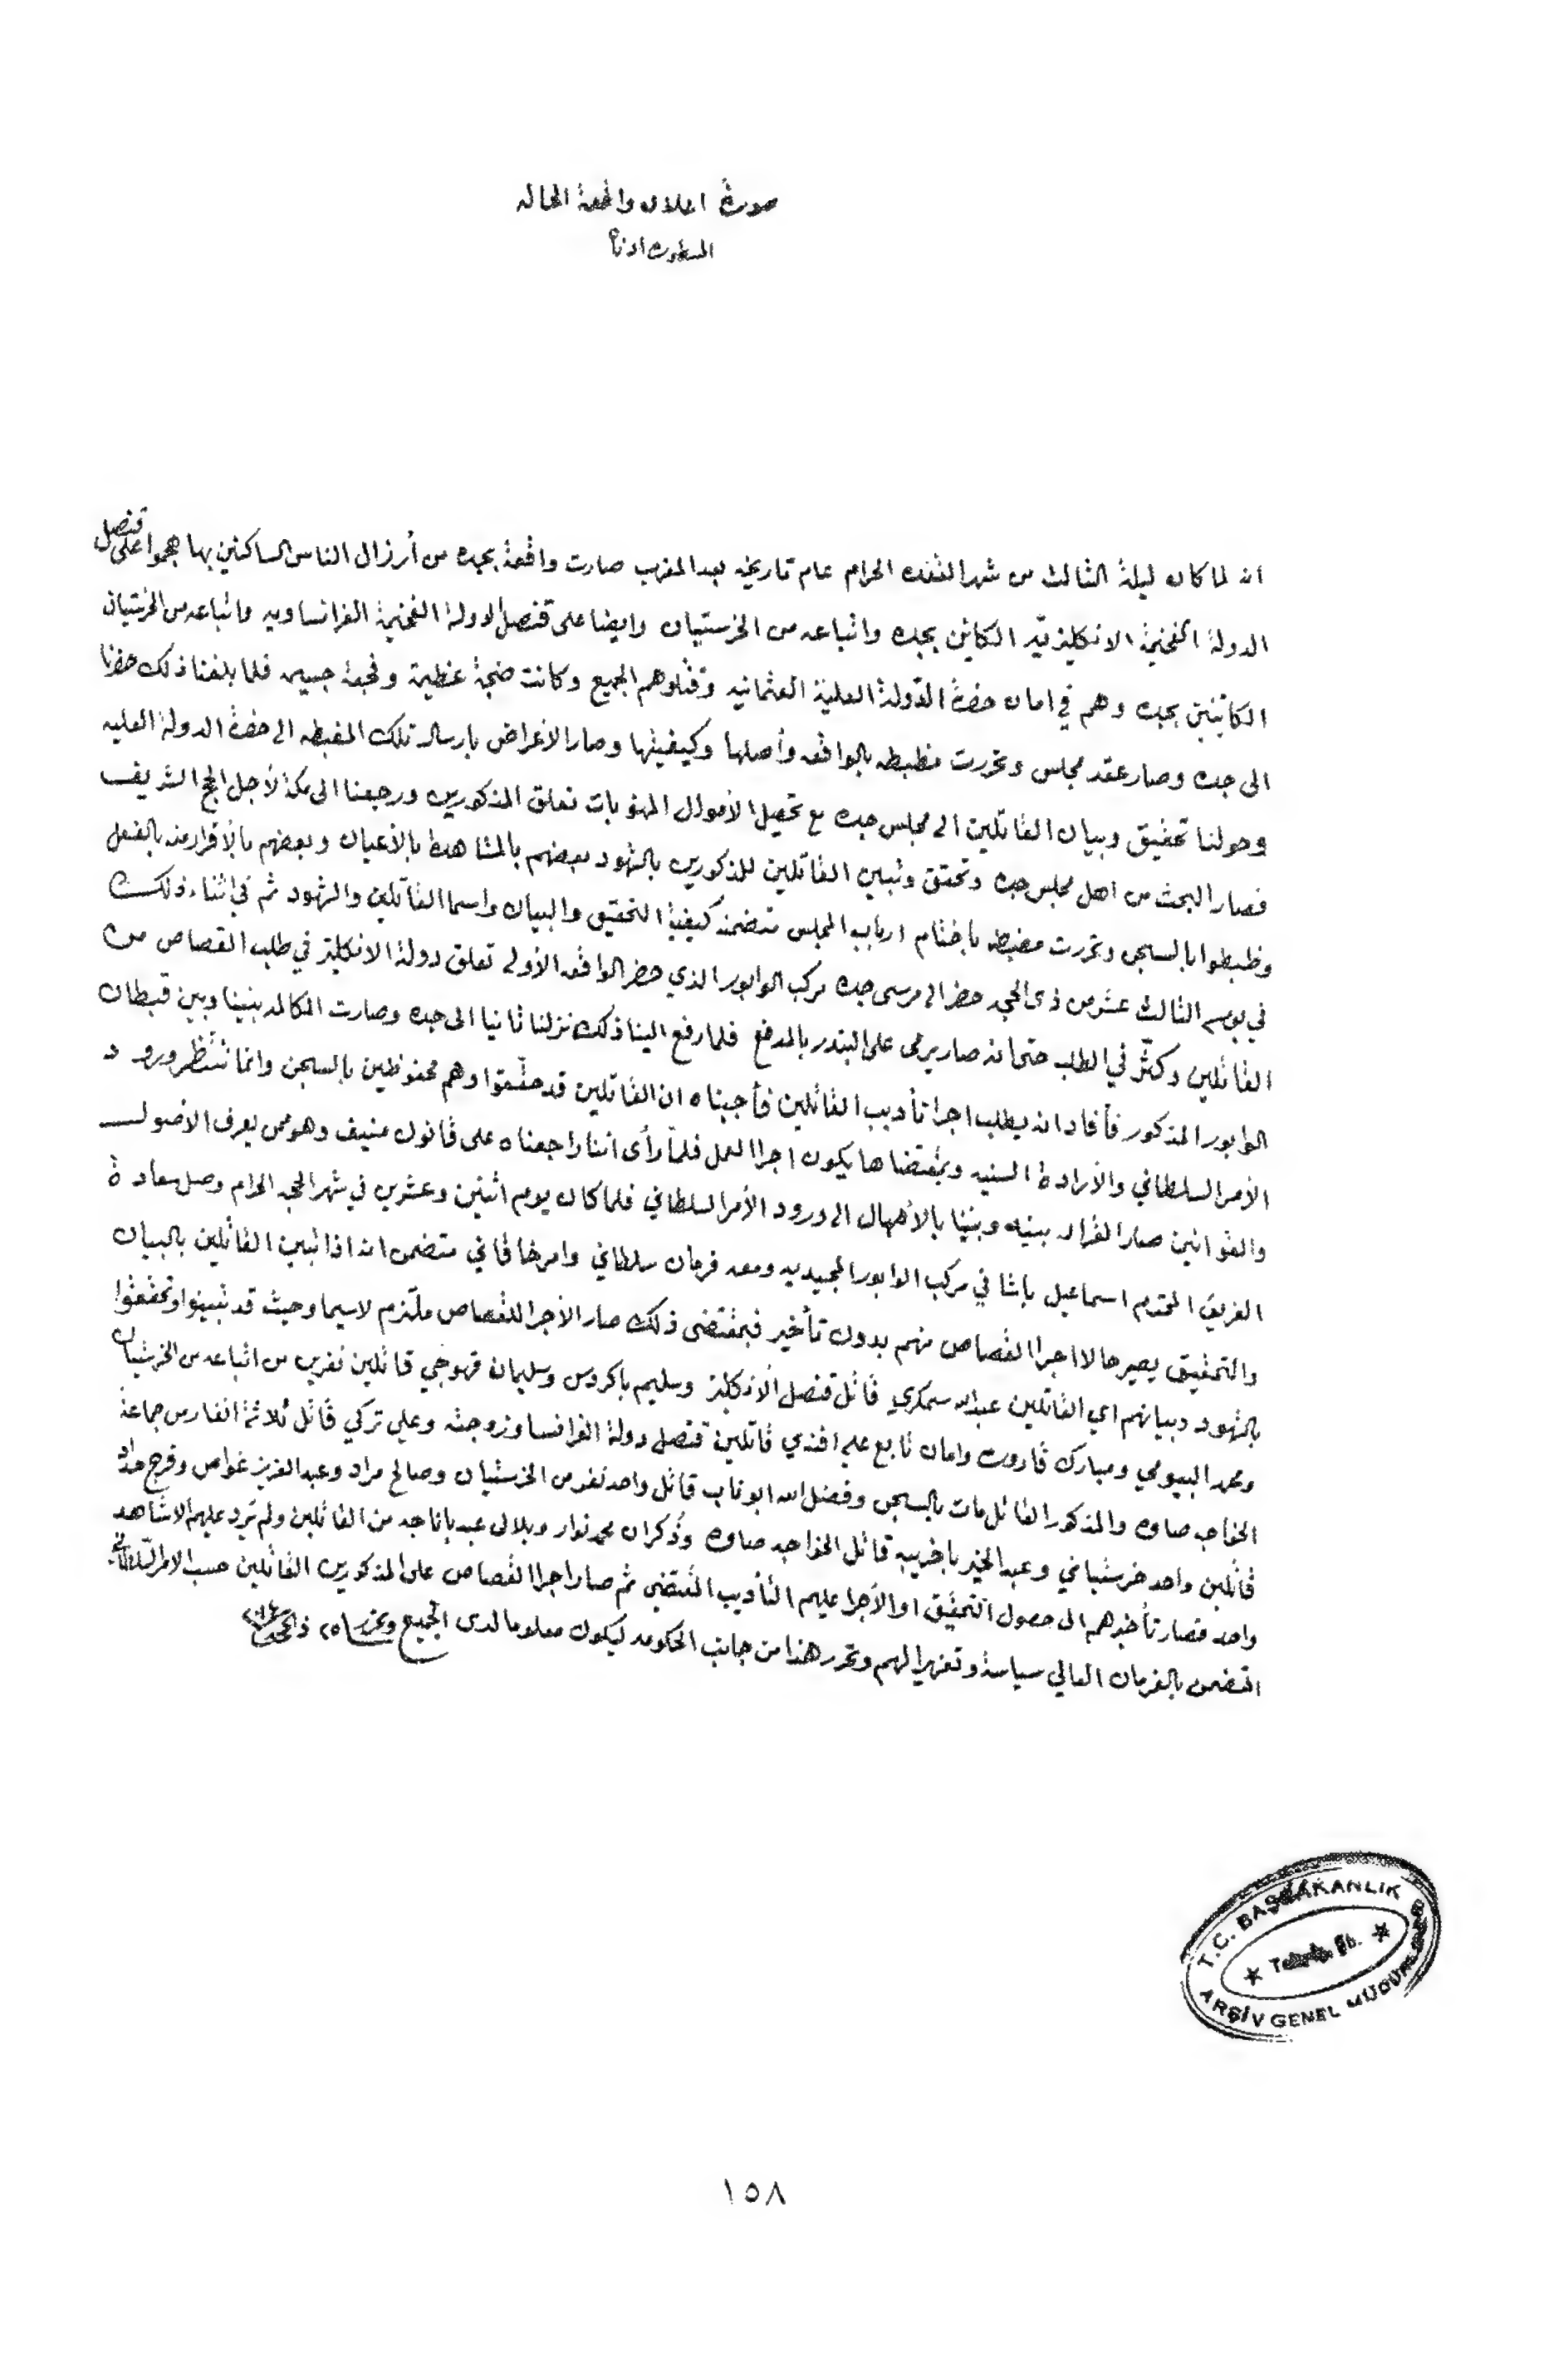 صورة اعلان واقعة الحاله
المسطور ادناه
قنصل
انه لما كان ليلة الثالث من شهر القعده الحرام عام تاريخه بعد المغرب صارت واقعة بجده من أرزال الناس الساكنين بها هجموا على
الدولة الفخيمة الانكليزيّه الكائن بجده واتباعه من الخرستيان وايضا على قنصل لدولة الفخيمة الفرانساويه واتباعه من الخرستيان
الكائنين بجده وهم في امان حضرة الدّولة العلية العثمانيه وقتلوهم الجميع وكانت ضجة عظيمة وفجعة جسيمه فلما بلغنا ذلك حضرنا
الى جده وصار عقد مجلس وتحررت مظبطه بالواقعه وأصلها وكيفيتها وصار الاعراض بارسال تلك المضبطه الى حضرة الدولة العليه
وحولنا تحقيق وبيان القاتلين الى مجلس جده مع تحصيل الأموال المنهوبات تعلق المذكورين ورجعنا الى مكة لأجل الحج الشريف
فصار البحث من اهل مجلس جده وتحقق وتبين القاتلين للمذكورين بالشهود بعضهم بالمشاهدة بالأعيان وبعضهم بالأقرار منه بالفعل
وظبطوا بالسجن وتحررت مضبطه باختام ارباب المجلس متضمنه كيفية التحقيق والبيان واسما القاتلين والشهود ثم في اثناء ذلك
في يوم الثالث عشر من ذي الحجه حضر الى مرسى جده مركب الوابور الذي حضر الواقعه الأولى تعلق دولة الانكليز في طلب القصاص من
القاتلين وكثّر في الطلب حتى انه صار يرمى على البندر بالمدفع فلما رفع الينا ذلك نزلنا ثانيا الى جده وصارت المكالمه بيننا وبين قبطان
الوابور المذكور فأفاد انه يطلب اجرا تأديب القاتلين فأجبناه ان القاتلين قد حققوا وهم محفوظين بالسجن وانما ننتظر ورود
الأمر السلطاني والأرادة السنيه وبمقتضاها يكون اجرا العمل فلمّا رأى اننا راجعناه على قانون منيف وهو ممن يعرف الاصول
والقوانين صار القرار بينه وبيننا بالأمهال الى ورود الأمر السلطاني فلما كان يوم اثنين وعشرين في شهر الحجه الحرام وصل سعادة
الفريق المحترم اسماعيل باشا في مركب الوابور المجيديه ومعه فرمان سلطاني وامر خاقاني متضمن انه اذا تبين القاتلين بالبيان
والتحقيق يصير حالا اجرا القصاص منهم بدون تأخير فبمقتضى ذلك صار الأجرا للقصاص ملتزم لاسيما وحيث قد تبينوا وتحققوا
بالشهود وبيانهم اي القاتلين عبدالله سمكري قاتل قنصل الأنكليز وسليم باكروس وسليمان قهوجي قاتلين نفرين من اتباعه من الخرستيان
ومحمد البيومي ومبارك قاروت وامان تابع علي افندي قاتلين قنصل دولة الفرانسا وزوجته وعلي تركي قاتل ثلاثة انفار من جماعة
الخواجه صاوه والمذكور القاتل مات بالسجن وفضل الله ابوناب قاتل واحد نفر من الخرستيان وصالح مراد وعبد العزيز غواص وفرج حداد
قاتلين واحد خرستياني وعبد الخير باخريبه قاتل الخواجه صاوه وذُكران محمد نوار وبلال عبد باناجه من القاتلين ولم يَرِد عليهم الا شاهد
واحد فصار تأخيرهم الى حصول التحقيق او الأجرا عليهم التأديب المقتضى ثم صار اجرا القصاص على المذكورين القاتلين حسب الامر السلطاني
المتضمن بالفرمان العالي سياسة وتعزيرا لهم وتحرر هذا من جانب الحكومه ليكون معلوما لدى الجميع وتحرر ٢٥ ذالحجه
T.C. BAŞBAKANLIK
ARŞİV GENEL MÜDÜRLÜĞÜ
١٥٨